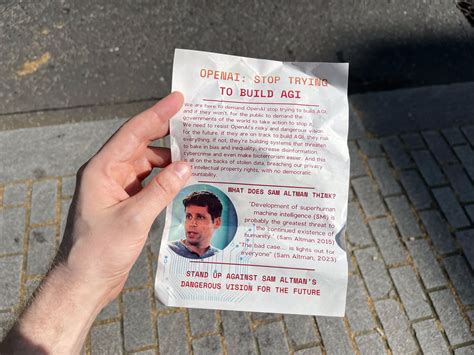 OPENAI: STOP TRYING
TO BUILD AGI
We are here to demand OpenAI stop trying to build AGI,
and if they won't, for the public to demand the
governments of the world to take action to stop it.
We need to resist OpenAI's risky and dangerous vision
for the future. If they are on track to build AGI, they risk
everything. If not, they're building systems that threaten
to bake in bias and inequality, increase disinformation,
cybercrime and even make bioterrorism easier. And this
is all on the backs of stolen data. Breaching our privacy
and intellectual property rights, with no democratic
accountability.
WHAT DOES SAM ALTMAN THINK?
"Development of superhuman
machine intelligence (SMI) is
probably the greatest threat to
the continued existence of
humanity." (Sam Altman 2015)
"The bad case... is lights out for
everyone" (Sam Altman, 2023)
STAND UP AGAINST SAM ALTMAN'S
DANGEROUS VISION FOR THE FUTURE